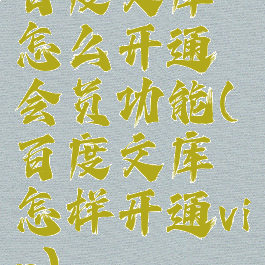 百度文库
怎么开通
会员功能(
百度文库
怎样开通vi